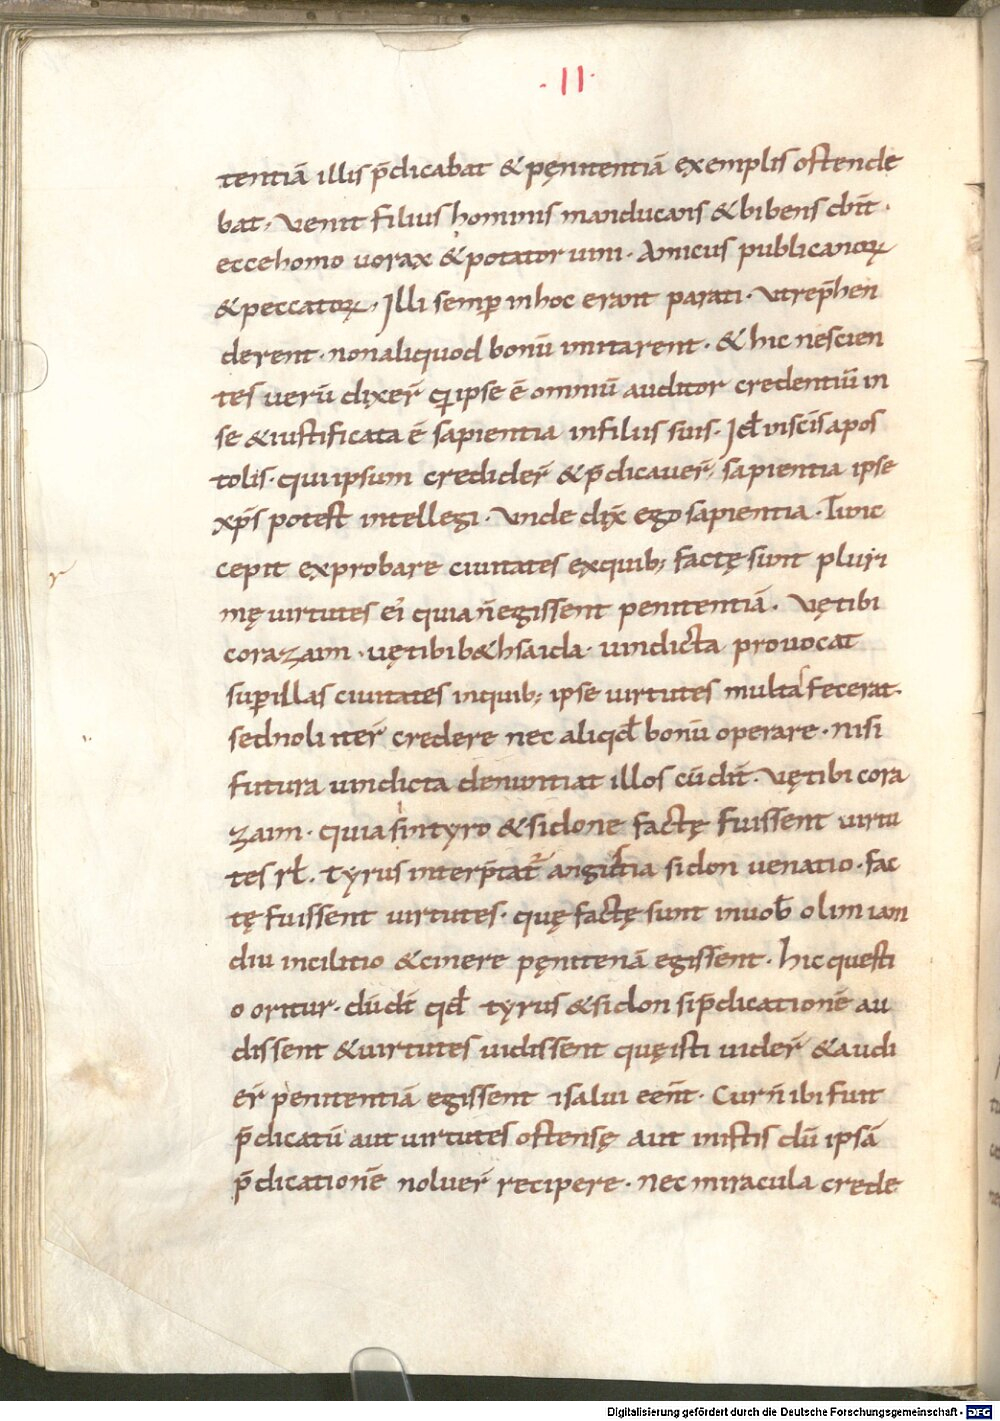 · II ·
tentiā illis p̄dicabat & pęnitentiā exemplis ostende
bat, Venit filius hominis manducans & bibens & dn̄t ·
ecce homo uorax & potator uini · Amicus publicanoꝝ
& peccatoꝝ, Illi semꝑ in hoc erant parati · Vt rep̄hen
derent · non aliquod bonū imitarent · & hic nescien
tes uerū dixer̄ ipse ē omniū auditor credentiū in
se & iustificata ē sapientia in filiis suis · Id ÷ in sc̄is apos
tolis · qui ipsum credider̄ & p̄dicauer̄, sapientia ipse
xp̄s potest intellegi · Vnde dix̄ ego sapientia · Tunc
cepit exprobare ciuitates ex quib; factę sunt pluri
mę uirtutes ei᾽ quia n̄ egissent penitentiā · Vę tibi
corazaim · uę tibi b&hsaida · uindicta prouocat
suꝑ illas ciuitates in quib; ipse uirtutes multas fecerat ·
sed noliuter̄ credere nec aliqd̄ bonū operare · nisi
futura uindicta denuntiat illos cū dit̄ · Vę tibi cora
zaim · quia si in tyro & sidone factę fuissent uirtu
tes rł · Tyrus interp̄tat᷑ angustia sidon uenatio · fac
tę fuissent uirtutes · quę factę sunt in uob̄ olim iam
diu in cilitio & cinere pęnitenā egissent · hic questi
o oritur · dū dt̄ qd̄ tyrus & sidon si p̄dicationē au
dissent & uirtutes uidissent quę isti uider̄ & audi
er̄ penitentiā egissent ⁊ salui een̄t · Cur n̄ ibi fuit
p̄dicatū aut uirtutes ostensę aut in istis dū ipsā
p̄dicationē noluer̄ recipere · nec miracula crede
Digitalisierung gefördert durch die Deutsche Forschungsgemeinschaft - DFG